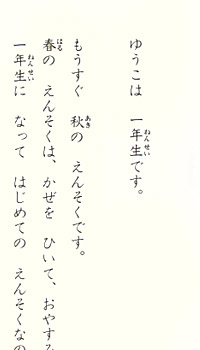 ゆうこは 一年生です。
もうすぐ 秋の えんそくです。
春の えんそくは、かぜを ひいて、おやすみ
一年生に なって はじめての えんそくなの